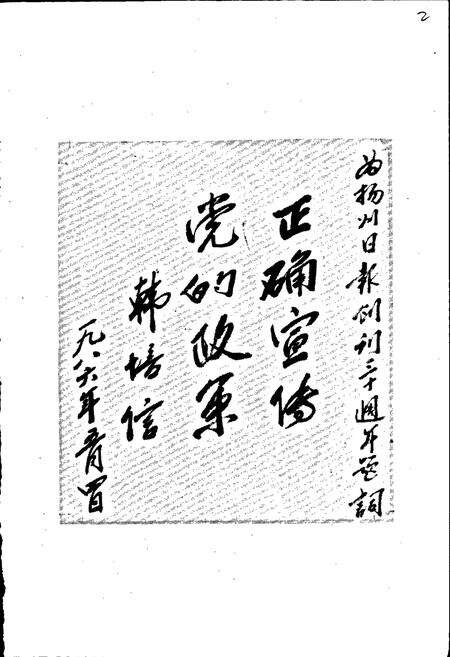 2
为扬州日報创刊三十週年题詞
正确宣传
党的政策
韩培信
一九八六年五月四日